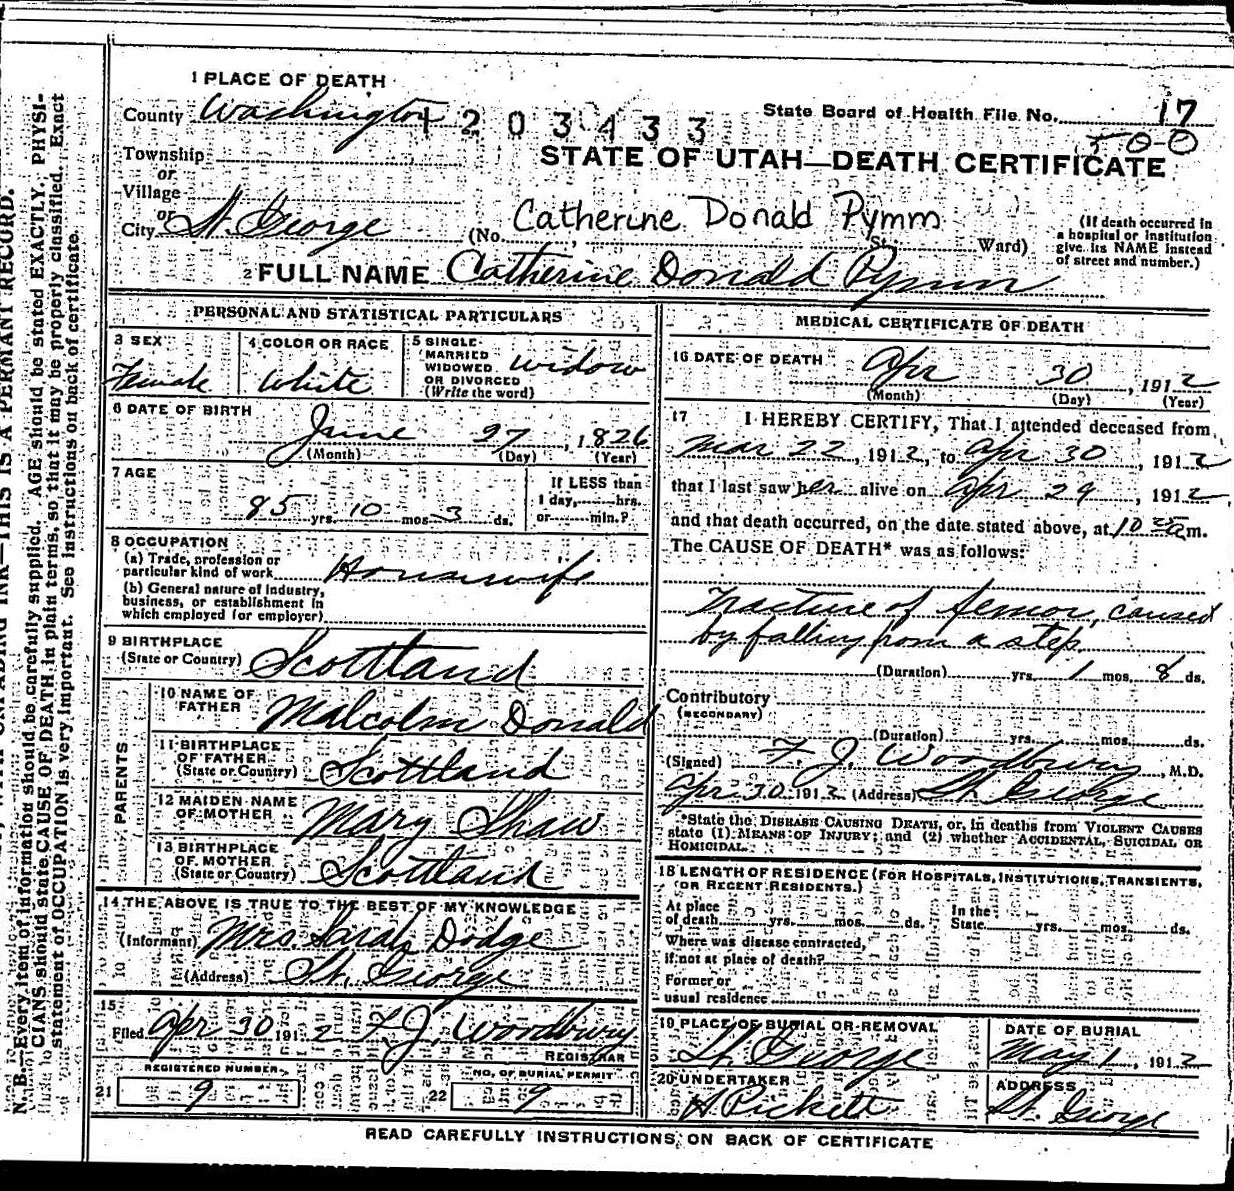 N. B.—Every item of information should be carefully supplied. AGE should be stated EXACTLY. PHYSI-
CIANS should state CAUSE OF DEATH in plain terms, so that it may be properly classified. Exact
statement of OCCUPATION is very important. See instructions on back of certificate.
1 PLACE OF DEATH
County Washington
1203433
State Board of Health File No. 17
500
Township
or
Village
or
City St. George
STATE OF UTAH—DEATH CERTIFICATE
Catherine Donald Pymm
(No. St. Ward)
(If death occurred in
a hospital or institution
give its NAME instead
of street and number.)
2 FULL NAME Catherine Donald Pymm
PERSONAL AND STATISTICAL PARTICULARS
3 SEX
Female
4 COLOR OR RACE
White
5 SINGLE
MARRIED
WIDOWED
OR DIVORCED
(Write the word)
widow
6 DATE OF BIRTH
June 27, 1826
(Month) (Day) (Year)
7 AGE
85 yrs. 10 mos 3 ds.
If LESS than
1 day, hrs.
or min.?
8 OCCUPATION
(a) Trade, profession or
particular kind of work Housewife
(b) General nature of industry,
business, or establishment in
which employed (or employer)
9 BIRTHPLACE
(State or Country) Scottland
PARENTS
10 NAME OF
FATHER Malcolm Donald
11 BIRTHPLACE
OF FATHER
(State or Country) Scottland
12 MAIDEN NAME
OF MOTHER Mary Shaw
13 BIRTHPLACE
OF MOTHER
(State or Country) Scottland
14 THE ABOVE IS TRUE TO THE BEST OF MY KNOWLEDGE
(Informant) Mrs. Sarah Dodge
(Address) St. George
15
Filed Apr 30 1912 F. J. Woodbury
REGISTRAR
REGISTERED NUMBER
21 9
NO. OF BURIAL PERMIT
22 9
MEDICAL CERTIFICATE OF DEATH
16 DATE OF DEATH
Apr 30, 1912
(Month) (Day) (Year)
17 I HEREBY CERTIFY, That I attended deceased from
Mar 22, 1912, to Apr 30, 1912
that I last saw her alive on Apr 29, 1912
and that death occurred, on the date stated above, at 10 25 a m.
The CAUSE OF DEATH* was as follows:
Fracture of femor, caused
by falling from a step
(Duration) yrs. 1 mos. 8 ds.
Contributory
(SECONDARY)
(Duration) yrs. mos. ds.
(Signed) F. J. Woodbury, M.D.
Apr 30 1912 (Address) St. George
*State the DISEASE CAUSING DEATH, or, in deaths from VIOLENT CAUSES
state (1) MEANS OF INJURY; and (2) whether ACCIDENTAL, SUICIDAL OR
HOMICIDAL.
18 LENGTH OF RESIDENCE (FOR HOSPITALS, INSTITUTIONS, TRANSIENTS,
OR RECENT RESIDENTS.)
At place
of death yrs. mos. ds.
In the
State yrs. mos. ds.
Where was disease contracted,
if not at place of death?
Former or
usual residence
19 PLACE OF BURIAL OR REMOVAL
St. George
DATE OF BURIAL
May 1, 1912
20 UNDERTAKER
A Pickett
ADDRESS
St. George
READ CAREFULLY INSTRUCTIONS, ON BACK OF CERTIFICATE